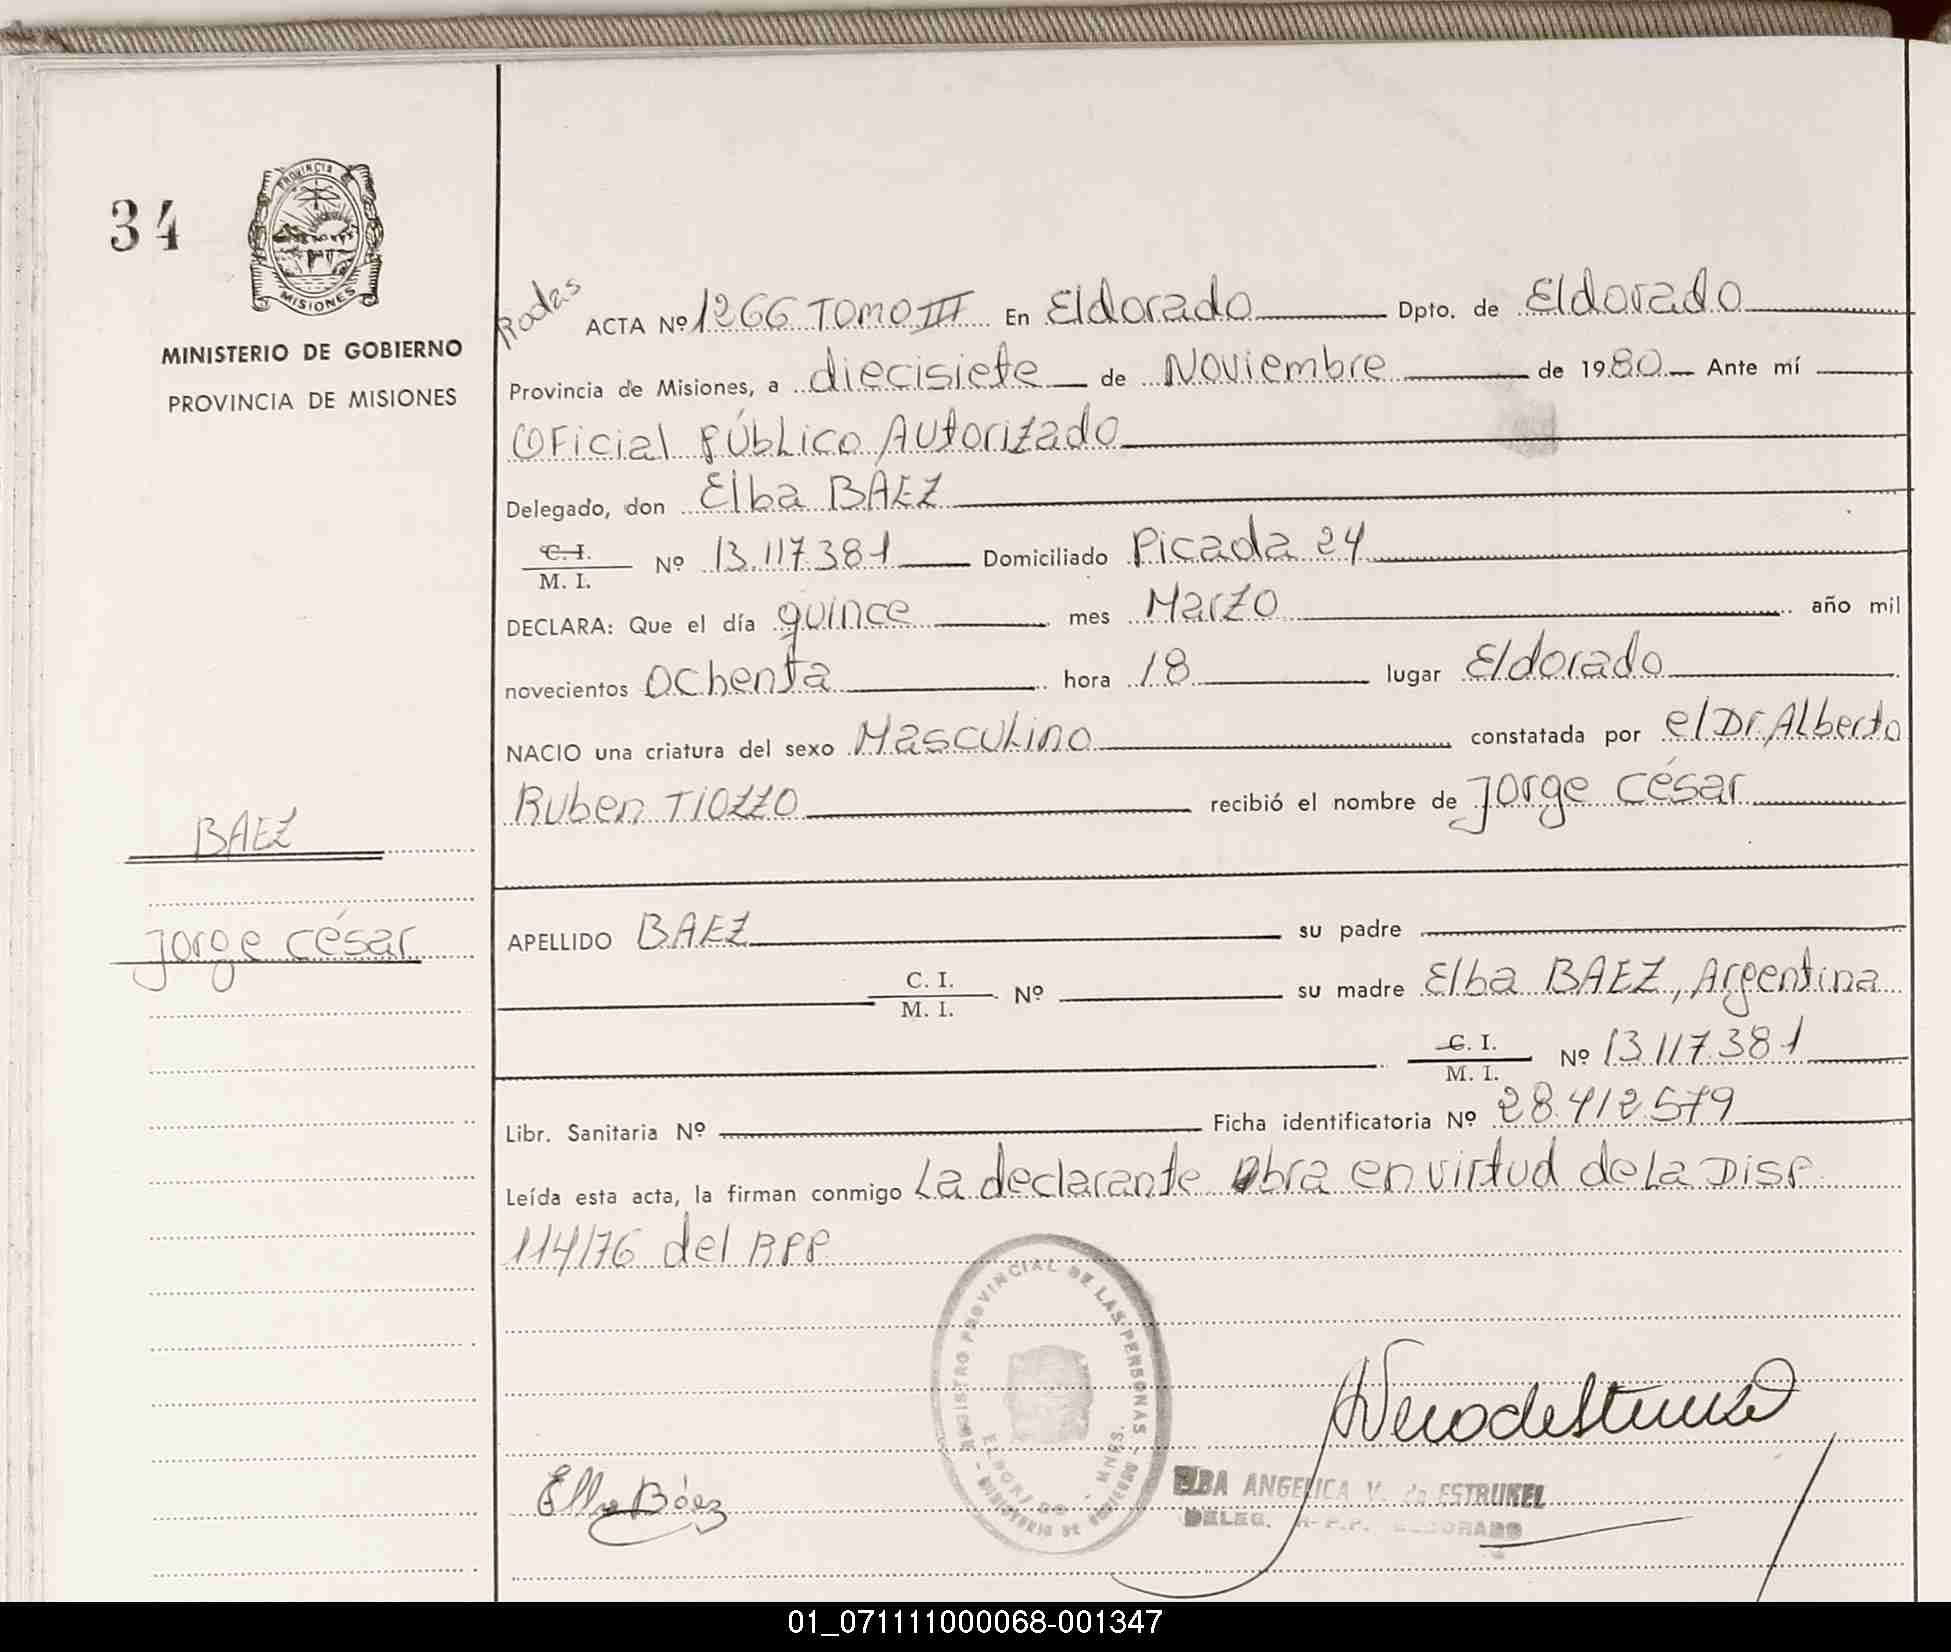 34
PROVINCIA
MISIONES
MINISTERIO DE GOBIERNO
PROVINCIA DE MISIONES
Rodas
ACTA Nº 1266 TOMO III En Eldorado Dpto. de Eldorado
Provincia de Misiones, a diecisiete de Noviembre de 1980 Ante mí
Oficial Público Autorizado
Delegado, don Elba BAEZ
C. I.
M. I. Nº 13.117.381 Domiciliado Picada 24
DECLARA: Que el día quince mes Marzo año mil
novecientos Ochenta hora 18 lugar Eldorado
NACIO una criatura del sexo Masculino constatada por el Dr. Alberto
Ruben TIOZZO recibió el nombre de Jorge César
BAEZ
Jorge César
APELLIDO BAEZ su padre
C. I.
M. I. Nº su madre Elba BAEZ, Argentina
C. I.
M. I. Nº 13.117.381
Libr. Sanitaria Nº Ficha identificatoria Nº 28.412.579
Leída esta acta, la firman conmigo La declarante obra en virtud de La Disp.
114/76 del RPP
REGISTRO PROVINCIAL DE LAS PERSONAS
ELDORADO - MNES.
MINISTERIO DE GOBIERNO
Elba Báez
ELBA ANGELICA V. de ESTRUKEL
DELEG. R.P.P. ELDORADO
01_071111000068-001347